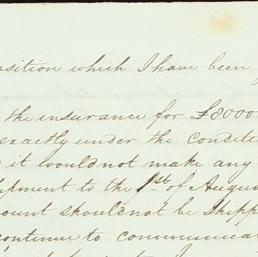 osition which I have been
the insurance for £8000
exactly under the conditi
it would not make any
ipment to the 1st of Augu
ount should not be shipp
continue to communica